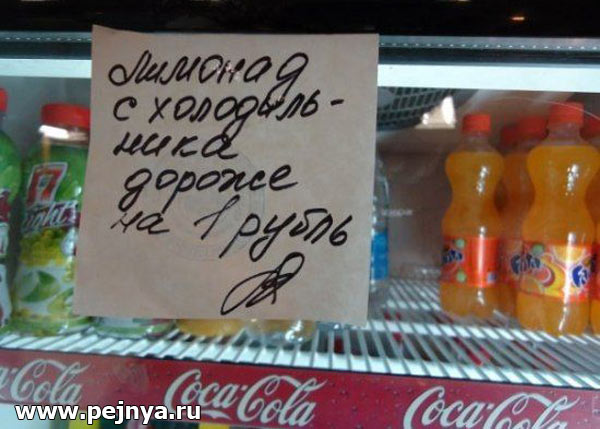 Лимонад
с холодиль-
ника
дороже
на 1 рубль
Fanta
Coca-Cola Coca-Cola Coca-Cola
www.pejnya.ru